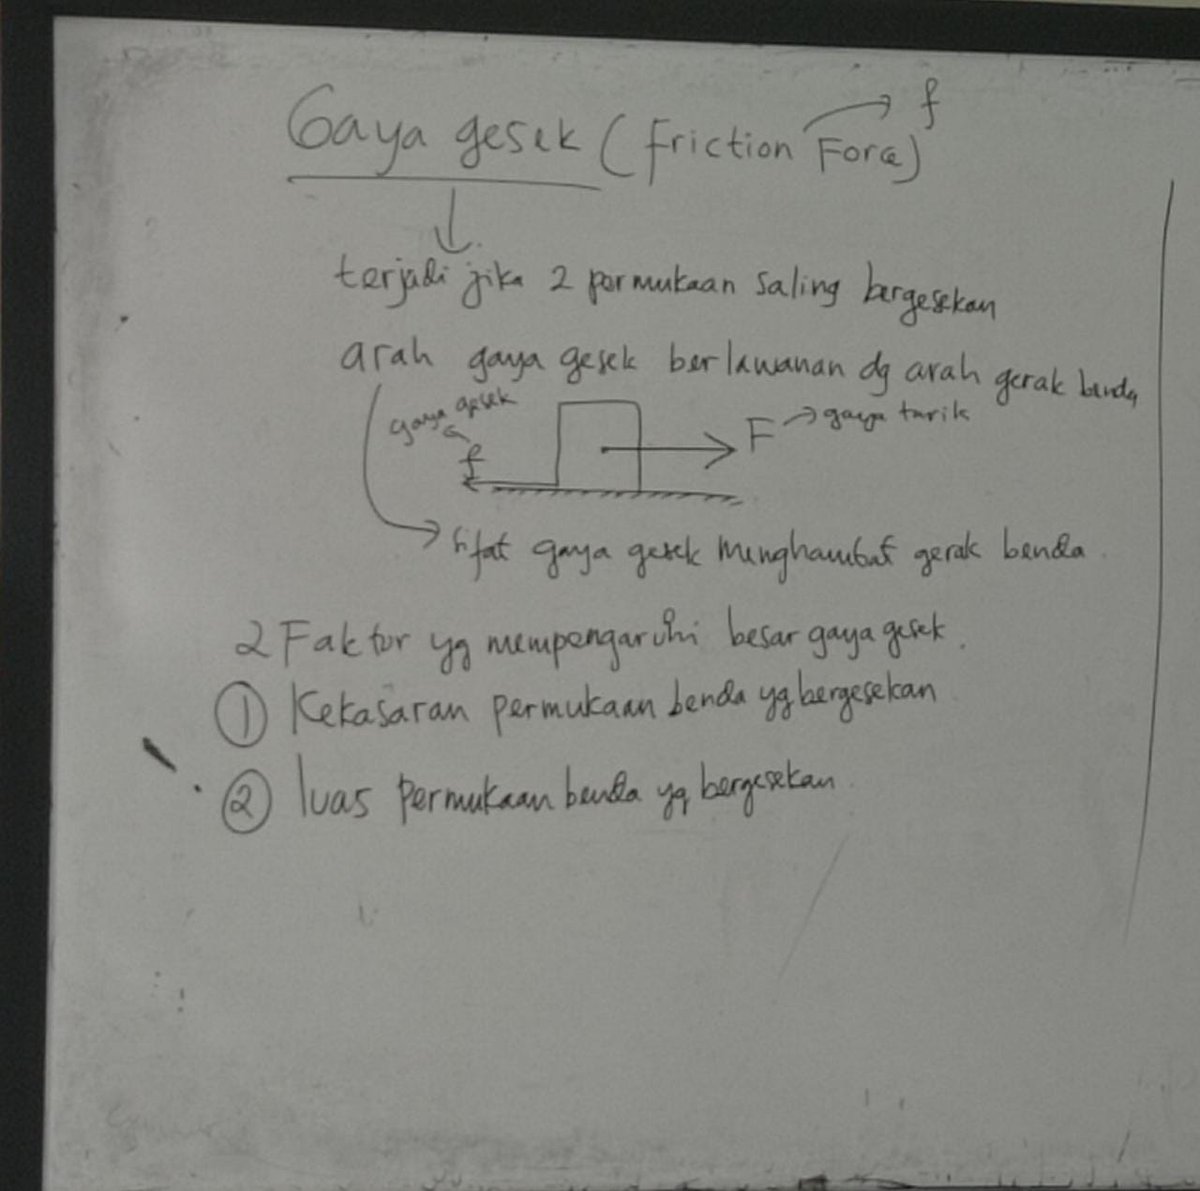 Gaya gesek (friction Force) → f
terjadi jika 2 permukaan saling bergesekan
arah gaya gesek berlawanan dg arah gerak benda
gaya gesek
f
F → gaya tarik
→ sifat gaya gesek menghambat gerak benda.
2 Faktor yg mempengaruhi besar gaya gesek.
① Kekasaran permukaan benda yg bergesekan
② luas permukaan benda yg bergesekan.